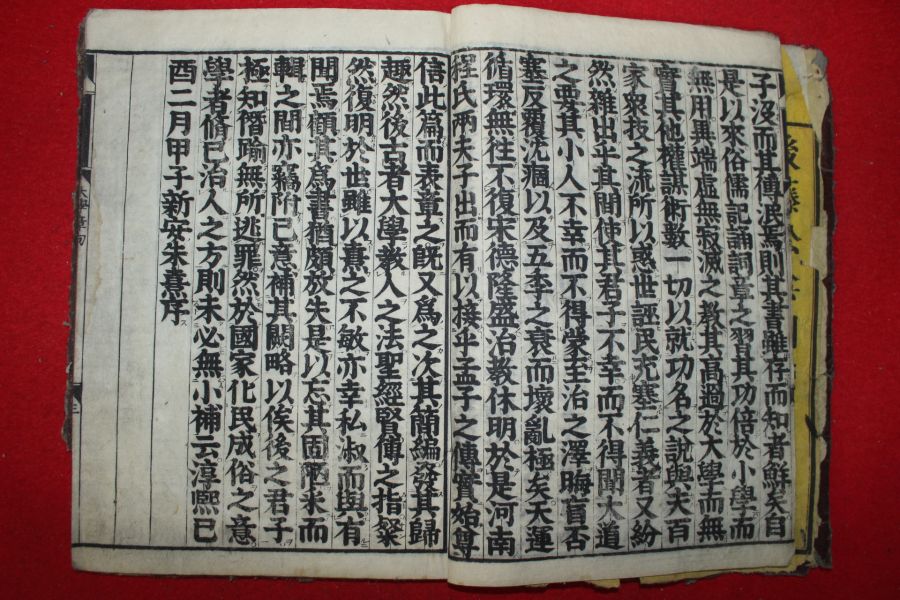 子没而其傳泯焉則其書雖存而知者鮮矣自
是以來俗儒記誦詞章之習其功倍於小學而
無用異端虛無寂滅之教其高過於大學而無
實其他權謀術數一切以就功名之說與夫百
家衆技之流所以惑世誣民充塞仁義者又紛
然雜出乎其間使其君子不幸而不得聞大道
之要其小人不幸而不得蒙至治之澤晦盲否
塞反覆沈痼以及五季之衰而壞亂極矣天運
循環無往不復宋德隆盛治教休明於是河南
程氏兩夫子出而有以接乎孟子之傳實始尊
信此篇而表章之旣又爲之次其簡編發其歸
趣然後古者大學教人之法聖經賢傳之指粲
然復明於世雖以熹之不敏亦幸私淑而與有
聞焉顧其爲書猶頗放失是以忘其固陋釆而
輯之間亦竊附已意補其闕略以俟後之君子
極知僭踰無所逃罪然於國家化民成俗之意
學者脩已治人之方則未必無小補云淳熙已
酉二月甲子新安朱熹序
三